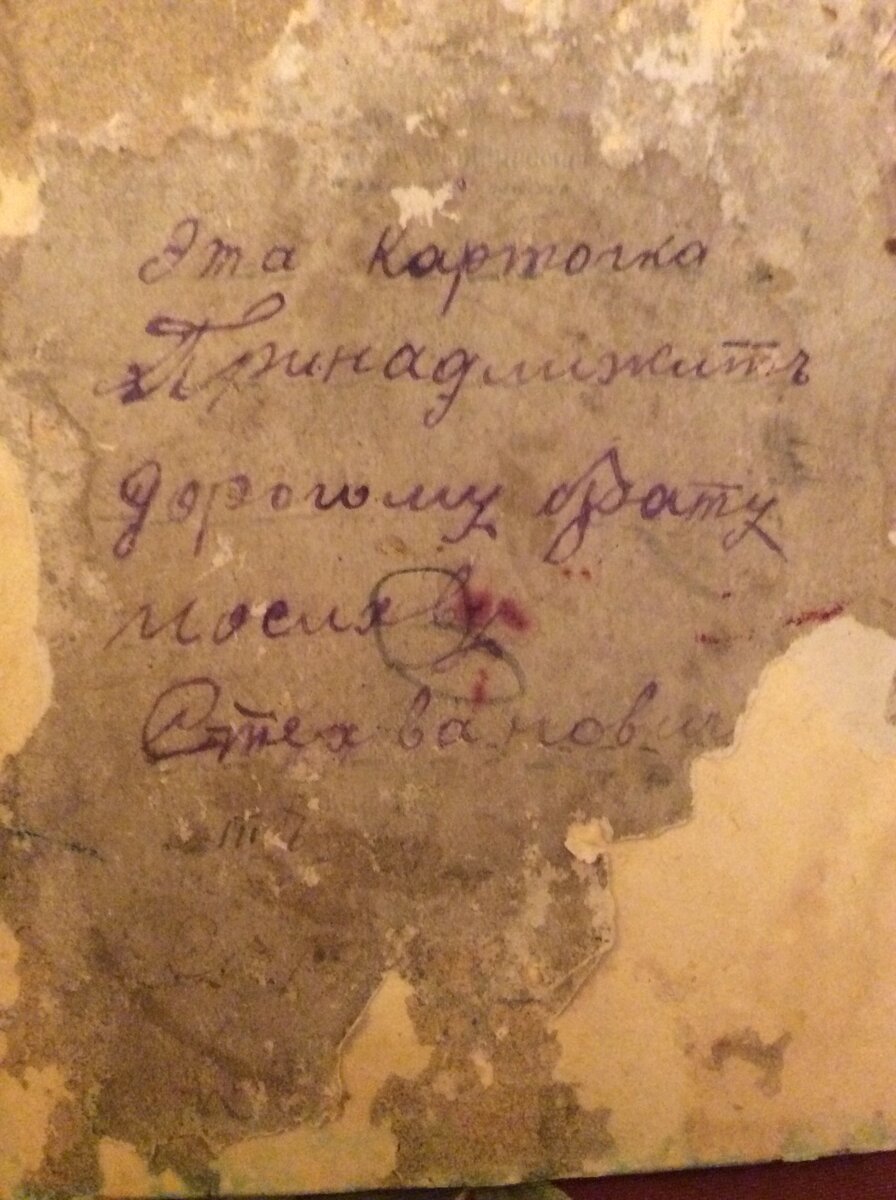 Эта карточка
Принадлижитъ
дорогому брату
Стехванович